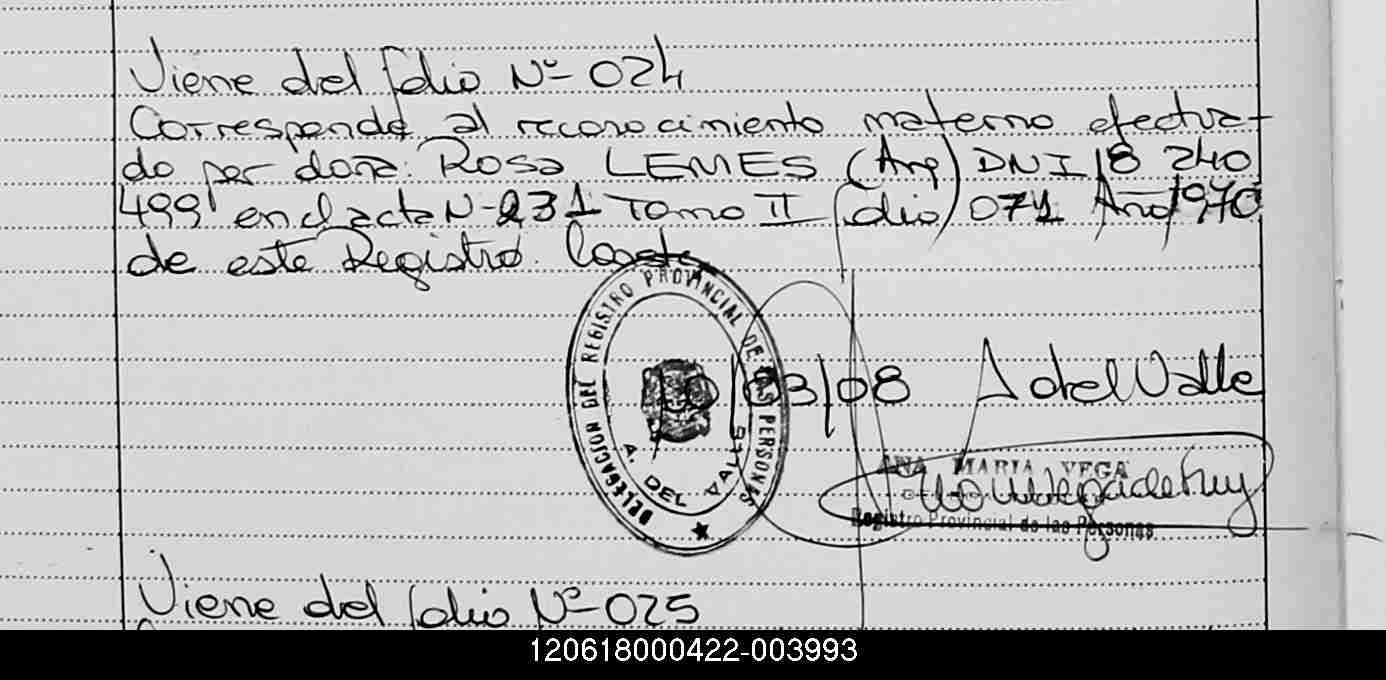 Viene del folio Nº 024
Corresponde al reconocimiento materno efectua-
do por doña: Rosa LEMES (Arg) DNI 18 240
499 en el acta Nº 231 Tomo II folio 071 Año 1970
de este Registro. Conste
DELEGACION DEL REGISTRO PROVINCIAL DE LAS PERSONAS
A. DEL VALLE
10/03/08 A del Valle
ANA MARIA VEGA
Registro Provincial de las Personas
Viene del folio Nº 025
120618000422-003993